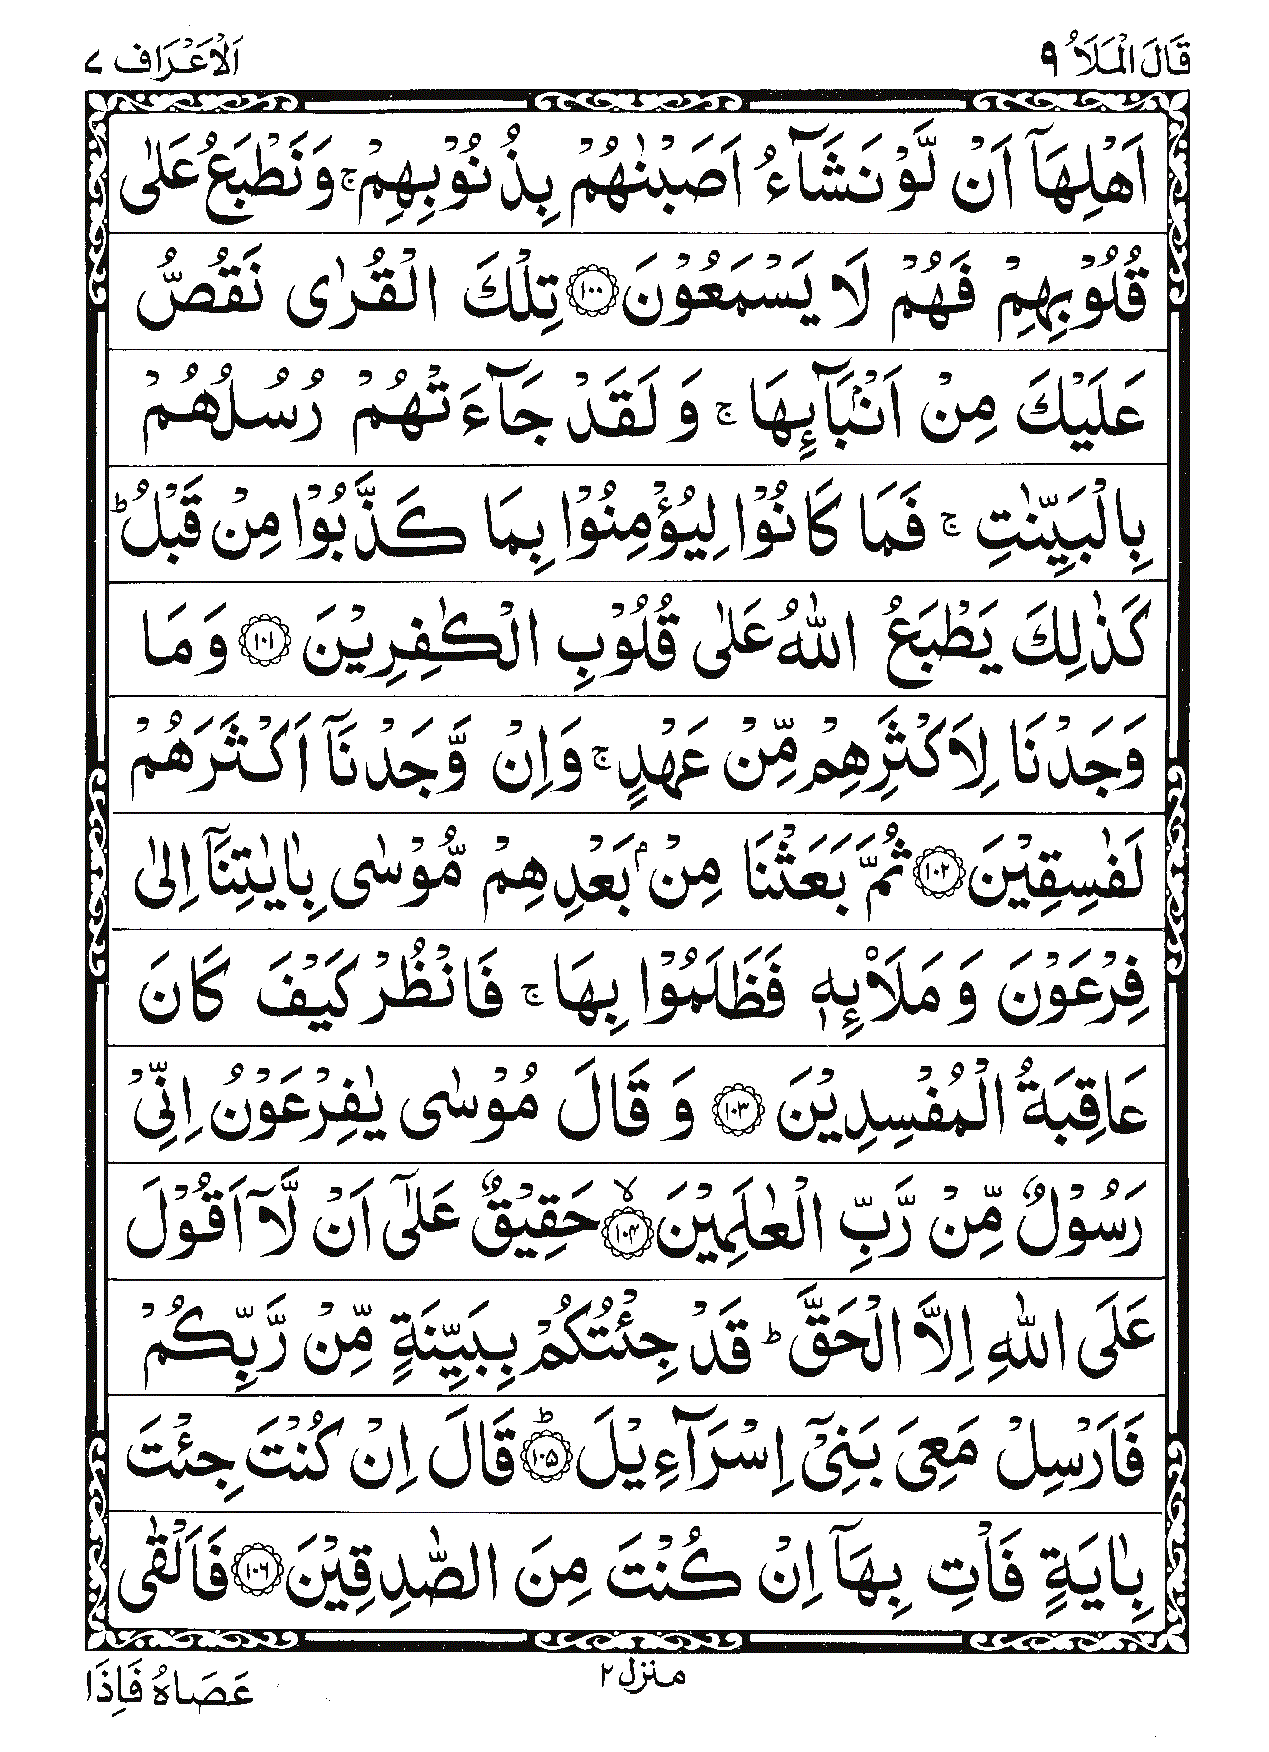 قَالَ الْمَلَاُ ٩
اَلْاَعْرَاف ٧
اَهْلِهَاۤ اَنْ لَّوْ نَشَآءُ اَصَبْنٰهُمْ بِذُنُوْبِهِمْ ۚ وَنَطْبَعُ عَلٰى
قُلُوْبِهِمْ فَهُمْ لَا يَسْمَعُوْنَ ﴿١٠٠﴾ تِلْكَ الْقُرٰى نَقُصُّ
عَلَيْكَ مِنْ اَنْۢبَآئِهَا ۚ وَ لَقَدْ جَآءَتْهُمْ رُسُلُهُمْ
بِالْبَيِّنٰتِ ۚ فَمَا كَانُوْا لِيُؤْمِنُوْا بِمَا كَذَّبُوْا مِنْ قَبْلُ ؕ
كَذٰلِكَ يَطْبَعُ اللّٰهُ عَلٰى قُلُوْبِ الْكٰفِرِيْنَ ﴿١٠١﴾ وَ مَا
وَجَدْنَا لِاَكْثَرِهِمْ مِّنْ عَهْدٍ ۚ وَاِنْ وَّجَدْنَاۤ اَكْثَرَهُمْ
لَفٰسِقِيْنَ ﴿١٠٢﴾ ثُمَّ بَعَثْنَا مِنْۢ بَعْدِهِمْ مُّوْسٰى بِاٰيٰتِنَاۤ اِلٰى
فِرْعَوْنَ وَ مَلَا۟ئِهٖ فَظَلَمُوْا بِهَا ۚ فَانْظُرْ كَيْفَ كَانَ
عَاقِبَةُ الْمُفْسِدِيْنَ ﴿١٠٣﴾ وَ قَالَ مُوْسٰى يٰفِرْعَوْنُ اِنِّيْ
رَسُوْلٌ مِّنْ رَّبِّ الْعٰلَمِيْنَ ﴿١٠٤﴾ۙ حَقِيْقٌ عَلٰۤى اَنْ لَّاۤ اَقُوْلَ
عَلَى اللّٰهِ اِلَّا الْحَقَّ ؕ قَدْ جِئْتُكُمْ بِبَيِّنَةٍ مِّنْ رَّبِّكُمْ
فَاَرْسِلْ مَعِيَ بَنِيْۤ اِسْرَآءِيْلَ ﴿١٠٥﴾ؕ قَالَ اِنْ كُنْتَ جِئْتَ
بِاٰيَةٍ فَاْتِ بِهَاۤ اِنْ كُنْتَ مِنَ الصّٰدِقِيْنَ ﴿١٠٦﴾ فَاَلْقٰى
منزل ٢
عَصَاهُ فَاِذَا